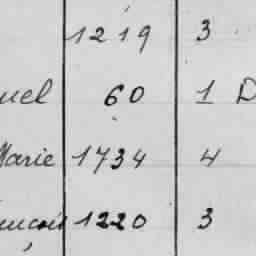 1219 3
uel 60 1 D
Marie 1734 4
ançois 1220 3